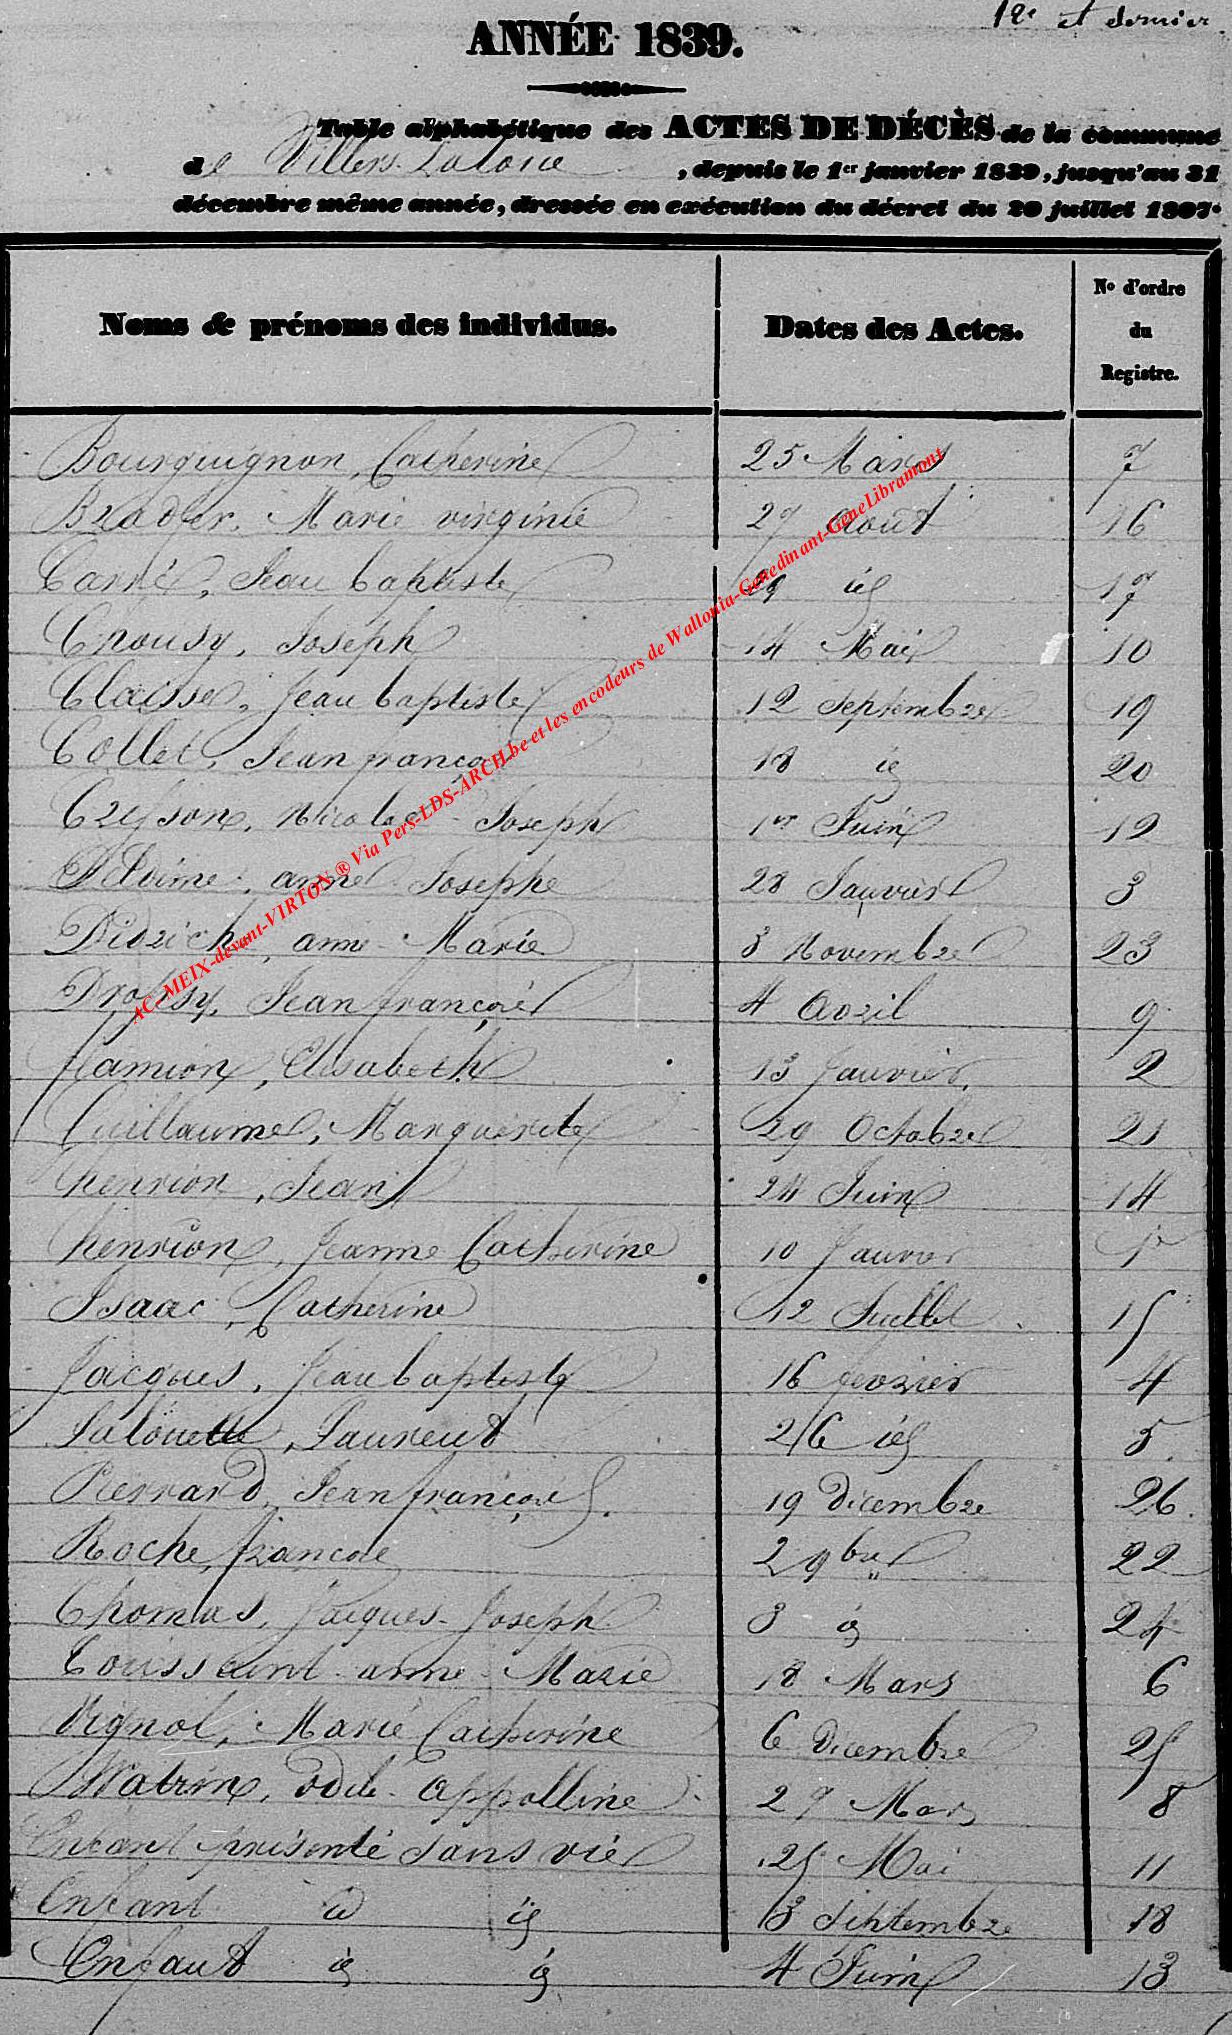 12e et dernier.
ANNÉE 1839.
Table alphabétique des ACTES DE DÉCÈS de la commune
de Villers-Laloue, depuis le 1er janvier 1839, jusqu'au 31
décembre même année, dressée en exécution du décret du 20 juillet 1807.
Noms & prénoms des individus. Dates des Actes. No d'ordre du Registre.
Bourguignon, Catherine 25 Mars 7
Brader, Marie virginie 27 aout 16
Carré, Jean baptiste 29 id 17
Chousy, Joseph 14 Mai 10
Claisse, Jean baptiste 12 septembre 19
Collet, Jean françois 18 id 20
Joseph 1er Juin 12
anne Josephe 28 Janvier 3
Didrich, anne-Marie 3 Novembre 23
Dropsy, Jean françois 4 avril 9
flamion, Elisabeth 13 Janvier 2
Guillaume, Marguerite 29 Octobre 21
henrion, Jean 24 Juin 14
henrion, Jeanne Catherine 10 Janvier 1er
Isaac, Catherine 12 Juillet 15
Jacques, Jean baptiste 16 fevrier 4
Lalouette, Laurent 26 id 5
Pierrard, Jean françois 19 Décembre 26
Roche, françois 2 9bre 22
Thomas, Jacques-Joseph 3 id 24
Toussaint anne-Marie 18 Mars 6
Vignol, Marie Catherine 6 Décembre 25
Watrin, Odile-appolline 27 Mars 8
Enfant présenté sans vie 25 Mai 11
Enfant id id 3 septembre 18
Enfant id id 4 Juin 13
AC-MEIX-devant-VIRTON ® Via Pers-LDS-ARCH.be et les encodeurs de Wallonia-Genedinant-GeneLibramont